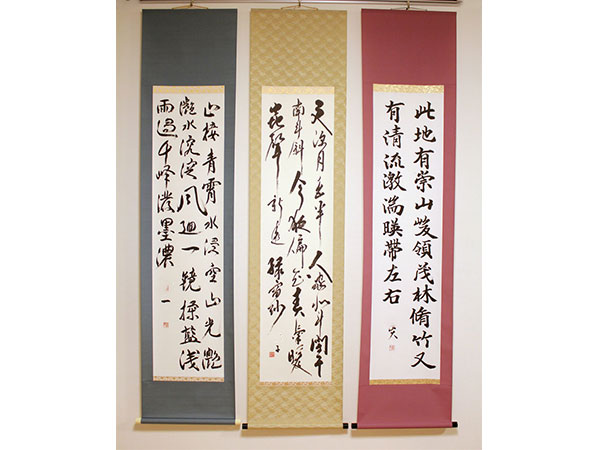 此地有崇山峻領茂林脩竹又
有清流激湍暎帶左右
更深月色半人家北斗闌干
南斗斜今夜偏知春氣暖
蟲聲新透綠窗紗
山接青霄水浸空山光灩
灩水溶溶風迴一鏡揉藍淺
雨過千峰潑墨濃
一